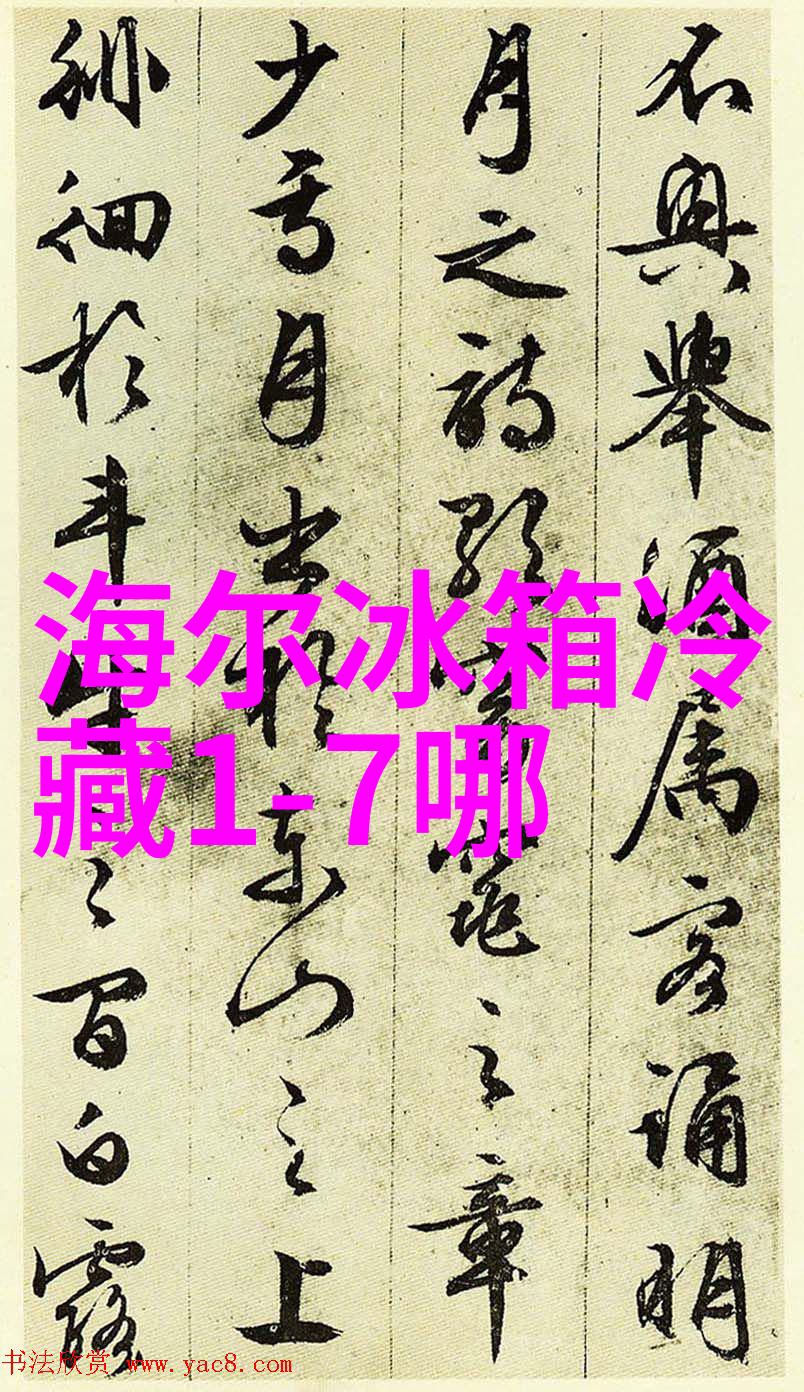 不興舉酒属客誦明
月之詩歌窈窕之章
少焉月出於東山之上
徘徊於斗牛之間白露
海尔冰箱冷
藏1-7哪
书法欣赏 www.yac8.com